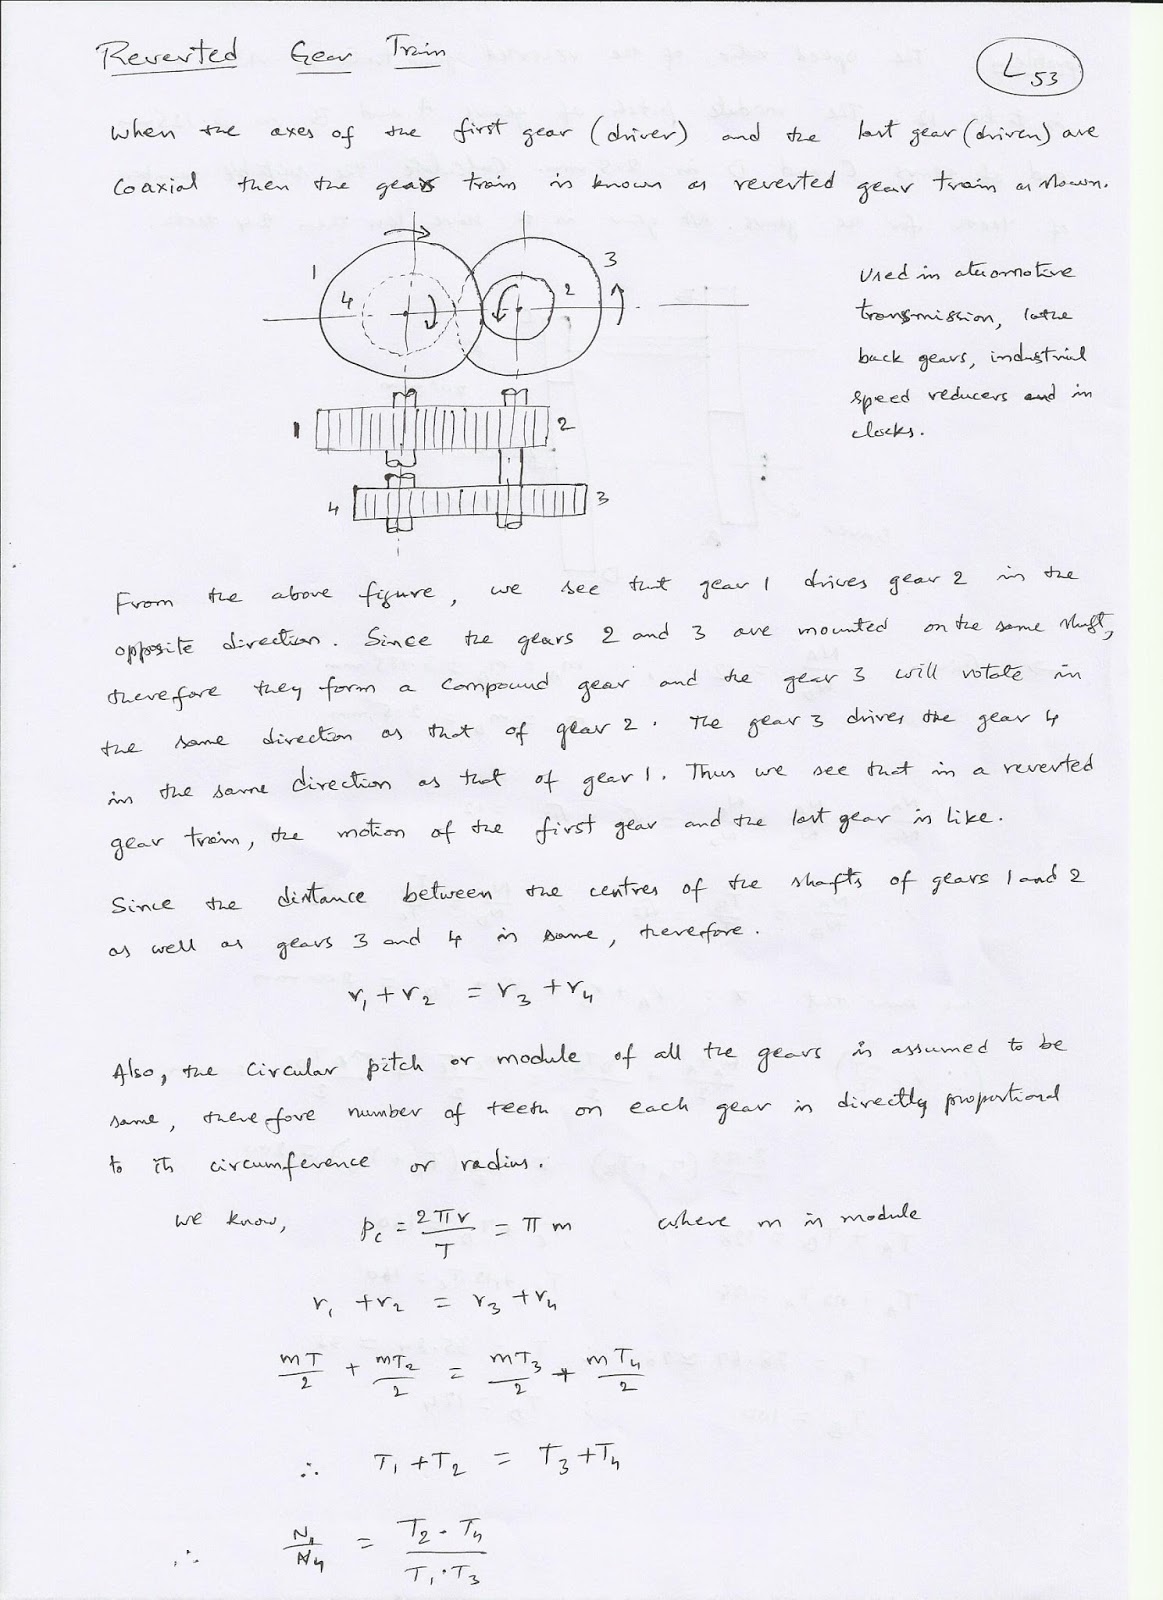 Reverted Gear Train
L53
When the axes of the first gear (driver) and the last gear (driven) are
coaxial then the gears train is known as reverted gear train as shown.
1 4 2 3
Used in atuomotive
transmission, lathe
back gears, industrial
speed reducers and in
clocks.
1 2
4 3
From the above figure, we see that gear 1 drives gear 2 in the
opposite direction. Since the gears 2 and 3 are mounted on the same shaft,
therefore they form a compound gear and the gear 3 will rotate in
the same direction as that of gear 2. The gear 3 drives the gear 4
in the same direction as that of gear 1. Thus we see that in a reverted
gear train, the motion of the first gear and the last gear is like.
Since the distance between the centres of the shafts of gears 1 and 2
as well as gears 3 and 4 is same, therefore.
r1 + r2 = r3 + r4
Also, the circular pitch or module of all the gears is assumed to be
same, therefore number of teeth on each gear is directly proportional
to its circumference or radius.
We know, Pc = 2πr/T = πm where m is module
r1 + r2 = r3 + r4
mT/2 + mT2/2 = mT3/2 + mT4/2
∴ T1 + T2 = T3 + T4
∴ N1/N4 = T2 · T4 / T1 · T3